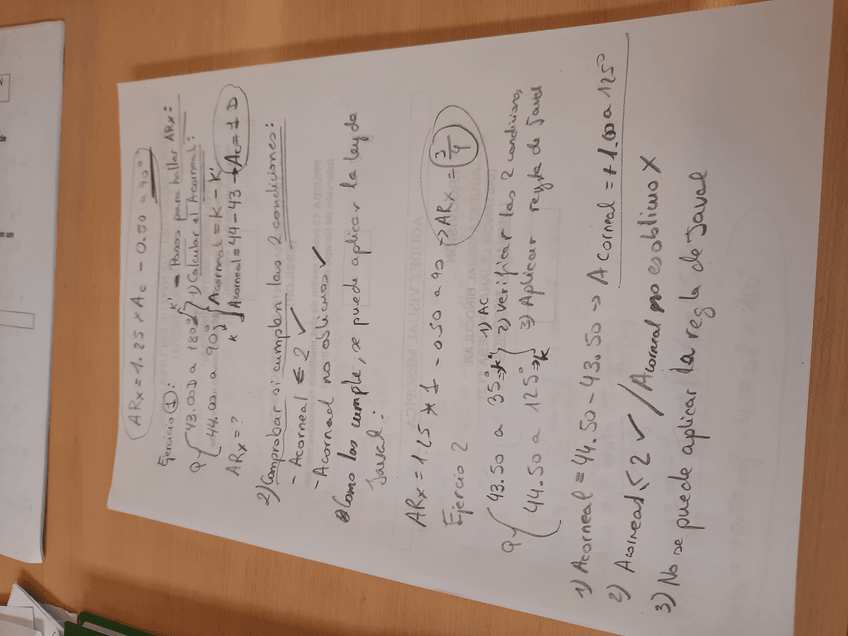 ARx = 1.25 x Ac - 0.50 a 90°
Ejercicio 1: → Pasos para hallar ARx:
Q { 43.00D a 180° K' } 1) Calcular el Acorneal:
44.00 a 90° } Acorneal = K - K'
ARx = ? K Acorneal = 44 - 43 → Ac = 1 D
2) Comprobar si cumplen las 2 condiciones:
- Acorneal ≤ 2 ✓
- Acorneal no oblicuos ✓
Como las cumple, se puede aplicar la ley de
Javal:
ARx = 1.25 * 1 - 0.50 a 90 → ARx = 3/4
Ejercio 2
Q { 43.50 a 35° → K' } 1) AC
44.50 a 125° → K } 2) Verificar las 2 condiciones
3) Aplicar regla de Javal
1) Acorneal = 44.50 - 43.50 → Acorneal = +1.00 a 125°
2) Acorneal ≤ 2 ✓ / Acorneal no es oblicuo X
3) No se puede aplicar la regla de Javal